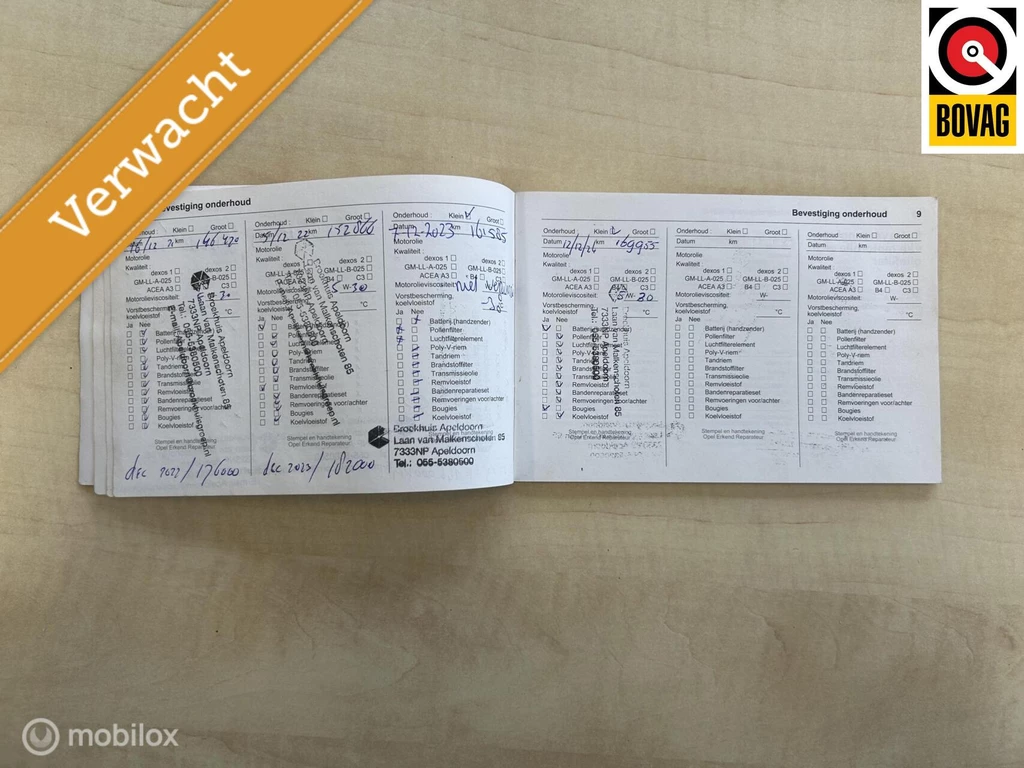 Verwacht
BOVAG
Bevestiging onderhoud
Onderhoud : Klein Groot
16/12 km 146420
Motorolie
Kwaliteit
dexos 1 dexos 2
GM-LL-A-025 GM-LL-B-025
ACEA A3 B4 C3
Motorolieviscositeit: W-30
Vorstbescherming,
koelvloeistof °C
Ja Nee
Batterij
Pollenfilter
Luchtfilterelement
Poly-V-riem
Tandriem
Brandstoffilter
Transmissieolie
Remvloeistof
Bandenreparatieset
Remvoeringen voor/achter
Bougies
Koelvloeistof
Stempel en handtekening
Opel Erkend Reparateur
dec 2022/176000
Onderhoud : Klein Groot
5/12 22 km 152866
Motorolie
Kwaliteit
dexos 1 dexos 2
GM-LL-A-025 GM-LL-B-025
ACEA A3 B4 C3
W-30
Ja Nee
Remvloeistof
Bandenreparatieset
Remvoeringen voor/achter
Bougies
Koelvloeistof
Stempel en handtekening
Opel Erkend Reparateur
dec 2023/182000
Onderhoud : Klein Groot
Datum 7-12-2023 km 161585
Motorolie
Kwaliteit
dexos 1 dexos 2
GM-LL-A-025 GM-LL-B-025
ACEA A3 B4 C3
Motorolieviscositeit:
Vorstbescherming,
koelvloeistof °C
Ja Nee
Batterij (handzender)
Pollenfilter
Luchtfilterelement
Poly-V-riem
Tandriem
Brandstoffilter
Transmissieolie
Remvloeistof
Bandenreparatieset
Remvoeringen voor/achter
Bougies
Koelvloeistof
Broekhuis Apeldoorn
Laan van Malkenschoten 85
7333NP Apeldoorn
Tel.: 055-5380500
Bevestiging onderhoud 9
Onderhoud : Klein Groot
Datum 12/12/24 km 169955
Motorolie
Kwaliteit
dexos 1 dexos 2
GM-LL-A-025 GM-LL-B-025
ACEA A3 B4 C3
Motorolieviscositeit: 5W-30
Vorstbescherming,
koelvloeistof °C
Ja Nee
Batterij (handzender)
Pollenfilter
Luchtfilterelement
Poly-V-riem
Tandriem
Brandstoffilter
Transmissieolie
Remvloeistof
Bandenreparatieset
Remvoeringen voor/achter
Bougies
Koelvloeistof
Stempel en handtekening
Opel Erkend Reparateur
Onderhoud : Klein Groot
Datum km
Motorolie
Kwaliteit
dexos 1 dexos 2
GM-LL-A-025 GM-LL-B-025
ACEA A3 B4 C3
Motorolieviscositeit: W-
Vorstbescherming,
koelvloeistof °C
Ja Nee
Batterij (handzender)
Pollenfilter
Luchtfilterelement
Poly-V-riem
Tandriem
Brandstoffilter
Transmissieolie
Remvloeistof
Bandenreparatieset
Remvoeringen voor/achter
Bougies
Koelvloeistof
Stempel en handtekening
Opel Erkend Reparateur
Onderhoud : Klein Groot
Datum km
Motorolie
Kwaliteit
dexos 1 dexos 2
GM-LL-A-025 GM-LL-B-025
ACEA A3 B4 C3
Motorolieviscositeit: W-
Vorstbescherming,
koelvloeistof °C
Ja Nee
Batterij (handzender)
Pollenfilter
Luchtfilterelement
Poly-V-riem
Tandriem
Brandstoffilter
Transmissieolie
Remvloeistof
Bandenreparatieset
Remvoeringen voor/achter
Bougies
Koelvloeistof
Stempel en handtekening
Opel Erkend Reparateur
mobilox